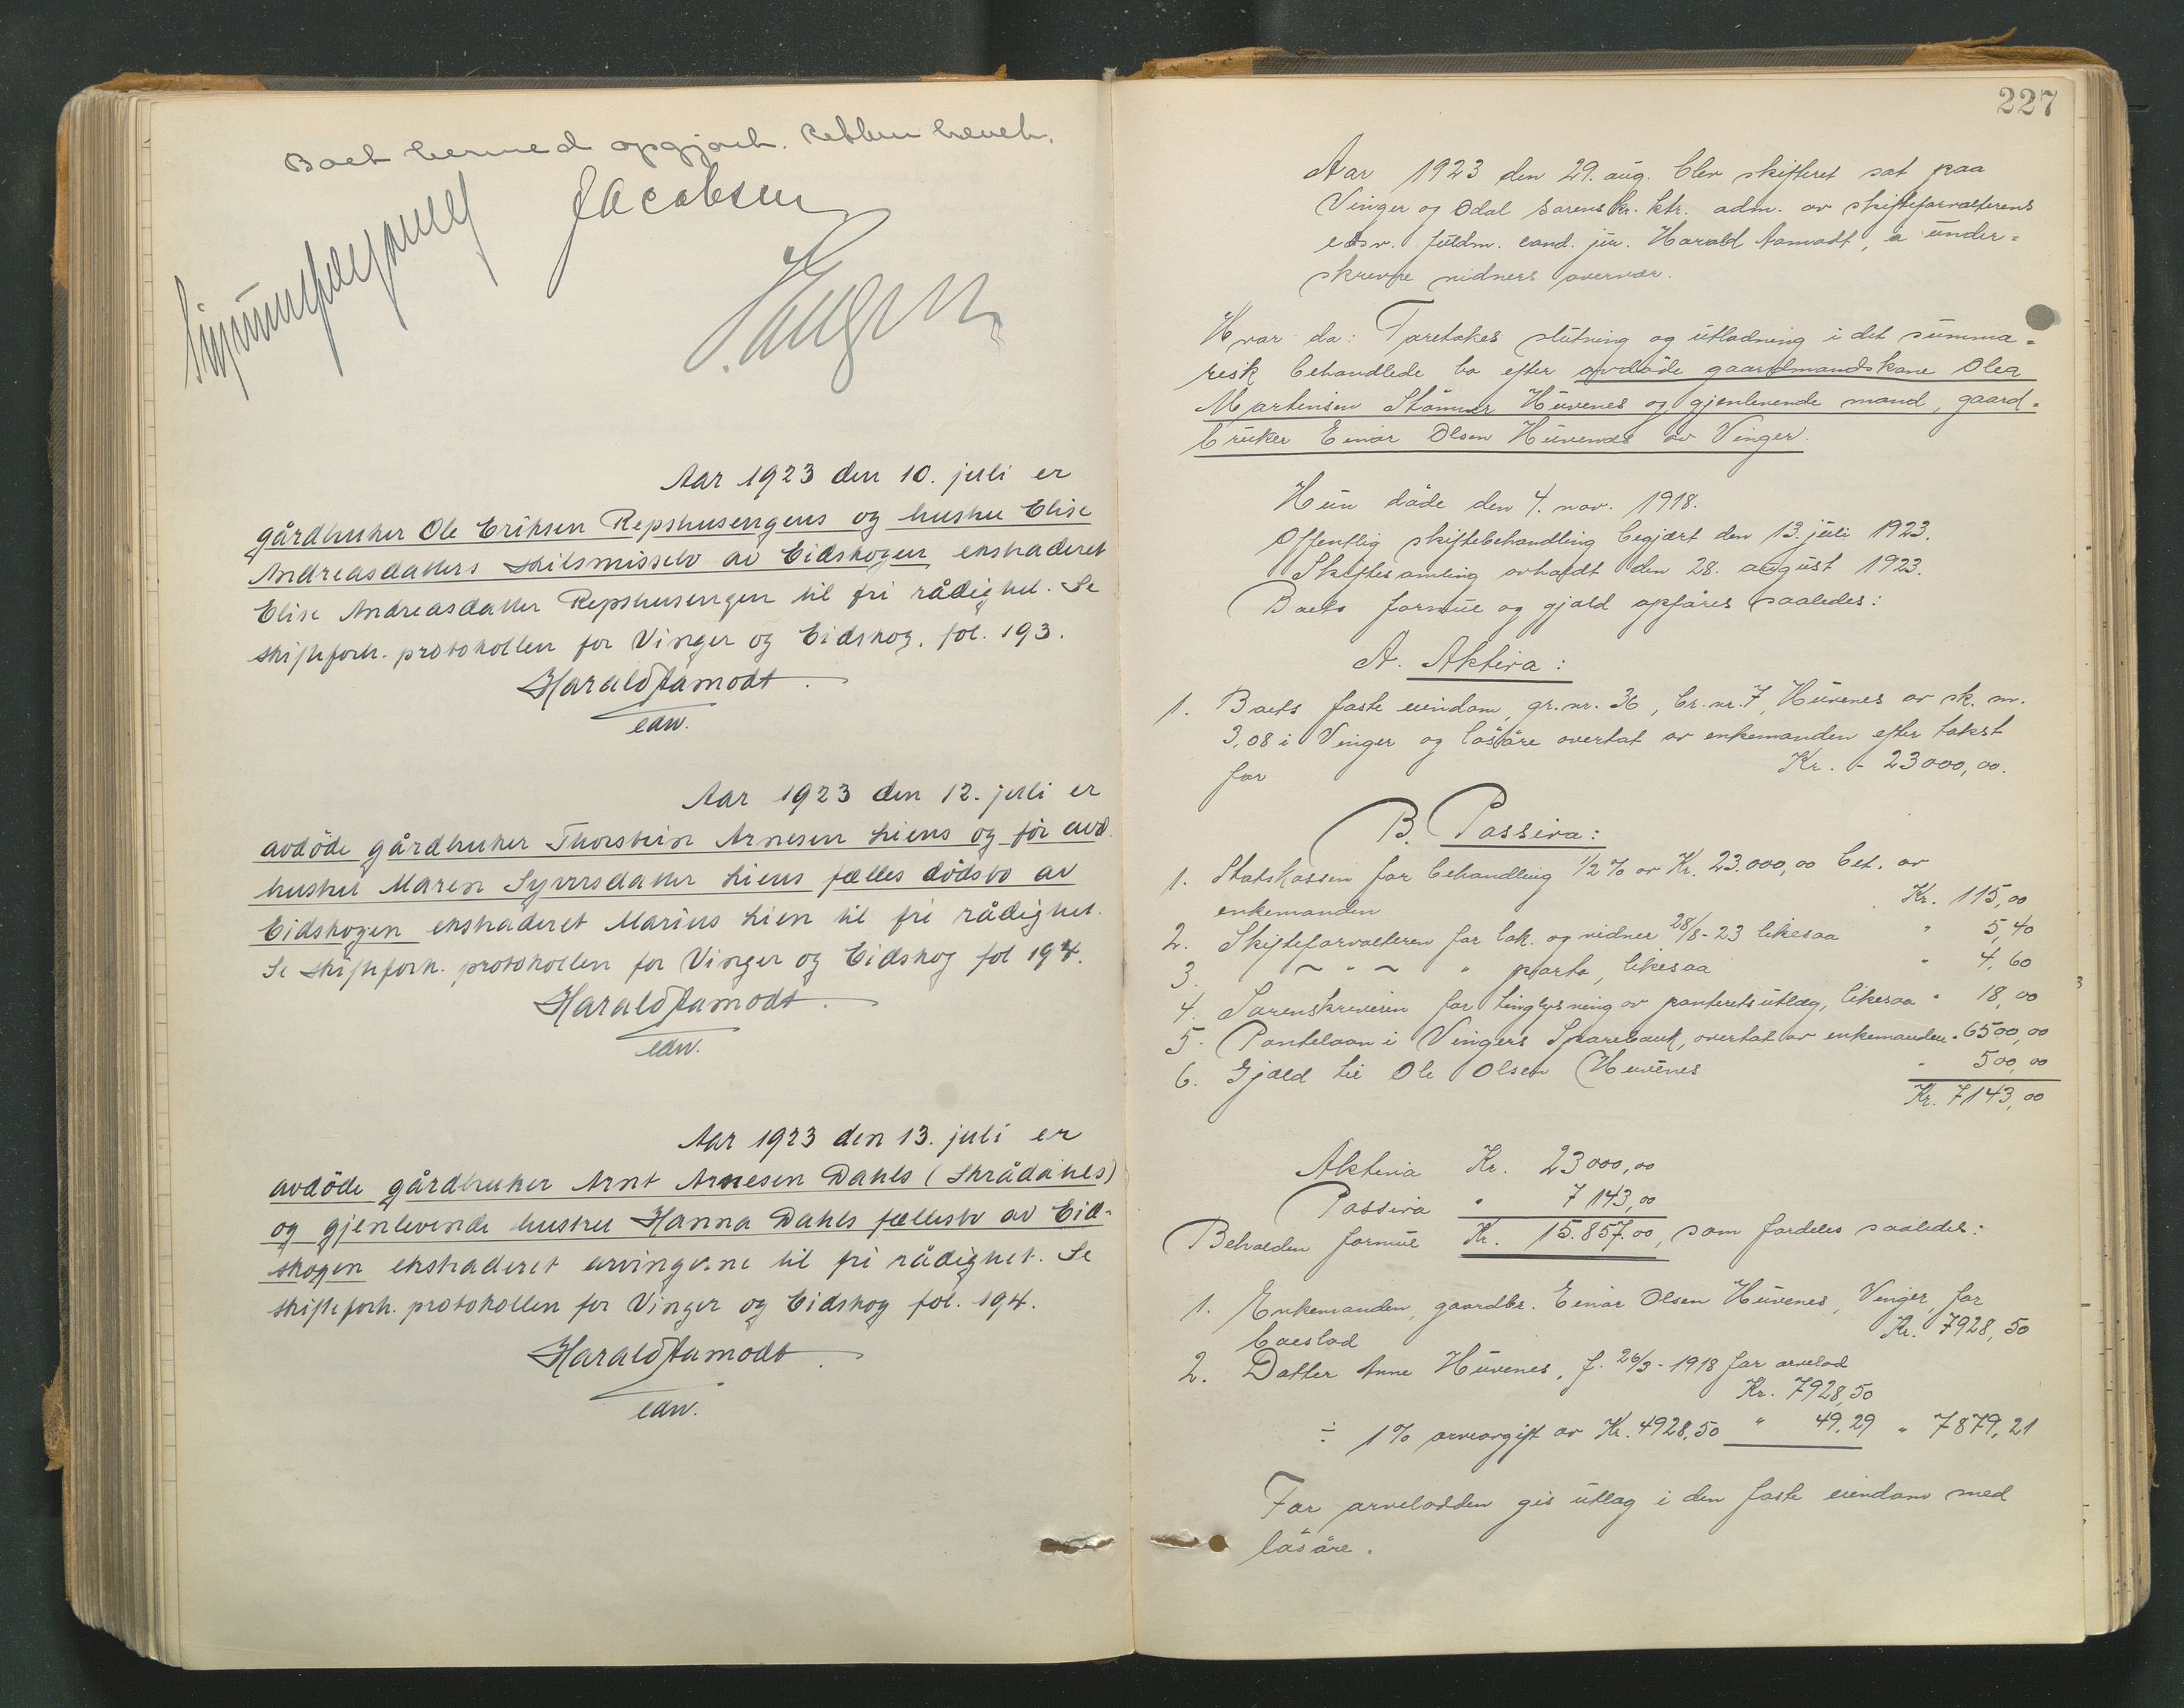 Boet hermed opgjort. Retten hevet.
Jacobsen
Aar 1923 den 10. juli er
gårdbruker Ole Eriksen Repshusengens og hustru Elise
Andreasdatters skilsmissebo av Eidskogen ekstraderet
Elise Andreasdatter Repshusengen til fri rådighet. Se
skifteforh. protokollen for Vinger og Eidskog. fol. 193.
Harald Aamodt.
edsv.
Aar 1923 den 12. juli er
avdöde gårdbruker Thorstein Arnesen Liens og før avd.
hustru Maren Syversdatter Liens fælles dödsbo av
Eidskogen ekstraderet Marius Lien til fri rådighet.
Se skifteforh. protokollen for Vinger og Eidskog fol 194.
Harald Aamodt.
edsv.
Aar 1923 den 13. juli er
avdöde gårdbruker Arnt Arnesen Dahls (Skrådahls)
og gjenlevende hustru Hanna Dahls fællesbo av Eid-
skogen ekstraderet arvingerne til fri rådighet. Se
skifteforh. protokollen for Vinger og Eidskog fol. 194.
Harald Aamodt.
edsv.
227
Aar 1923 den 29. aug. blev skifteret sat paa
Vinger og Odal sorenskr. ktr. adm. av skifteforvalterens
edsv. fuldm. cand. jur. Harald Aamodt, i under-
skrevne vidners overvær.
Hvor da: Foretokes slutning og utlodning i det summa-
risk behandlede bo efter avdöde gaardmandskone Olea
Martinsen Stömner Huvenes og gjenlevende mand, gaard-
bruker Einar Olsen Huvenes av Vinger.
Hun döde den 4. nov. 1918.
Offentlig skiftebehandling begjært den 13. juli 1923.
Skiftesamling avholdt den 28. august 1923.
Boets formue og gjæld opføres saaledes:
A. Aktiva:
1. Boets faste eiendom, gr. nr. 36, br. nr. 7, Huvenes av sk. m.
3,08 i Vinger og lösöre overtat av enkemanden efter takst
for Kr. - 23000,00.
B. Passiva:
1. Statskassen for behandling 1/2 % av Kr. 23.000,00 bet. av
enkemanden Kr. 115,00
2. Skifteforvalteren for lok. og vidner 28/8-23 likesaa " 5,40
3. ~ " ~ " porto, likesaa " 4,60
4. Sorenskriveren for tinglysning av panteretsutlæg, likesaa " 18,00
5. Pantelaan i Vingers Sparebank, overtat av enkemanden " 6500,00
6. Gjæld til Ole Olsen Huvenes " 500,00
Kr. 7143,00
Aktiva Kr. 23000,00
Passiva " 7143,00
Beholden formue Kr. 15.857,00, som fordeles saaledes:
1. Enkemanden, gaardbr. Einar Olsen Huvenes, Vinger, for
boeslod Kr. 7928,50
2. Datter Anne Huvenes, f. 26/3-1918 for arvelod
Kr. 7928,50
÷ 1% arveavgift av Kr. 4928,50 " 49,29 " 7879,21
For arvelodden gis utlæg i den faste eiendom med
lösöre.